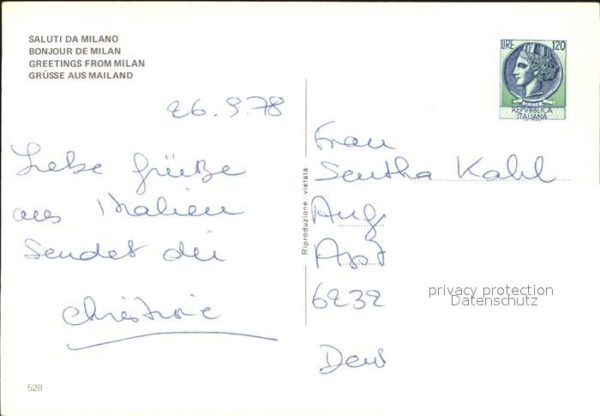 SALUTI DA MILANO
BONJOUR DE MILAN
GREETINGS FROM MILAN
GRÜSSE AUS MAILAND
LIRE 120
REPVBBLICA
ITALIANA
26.9.78
Liebe Grüße
aus Italien
Sendet dir
Christine
Riproduzione vietata
Frau
Sentha Kahl
Aug
6232
privacy protection
Datenschutz
528